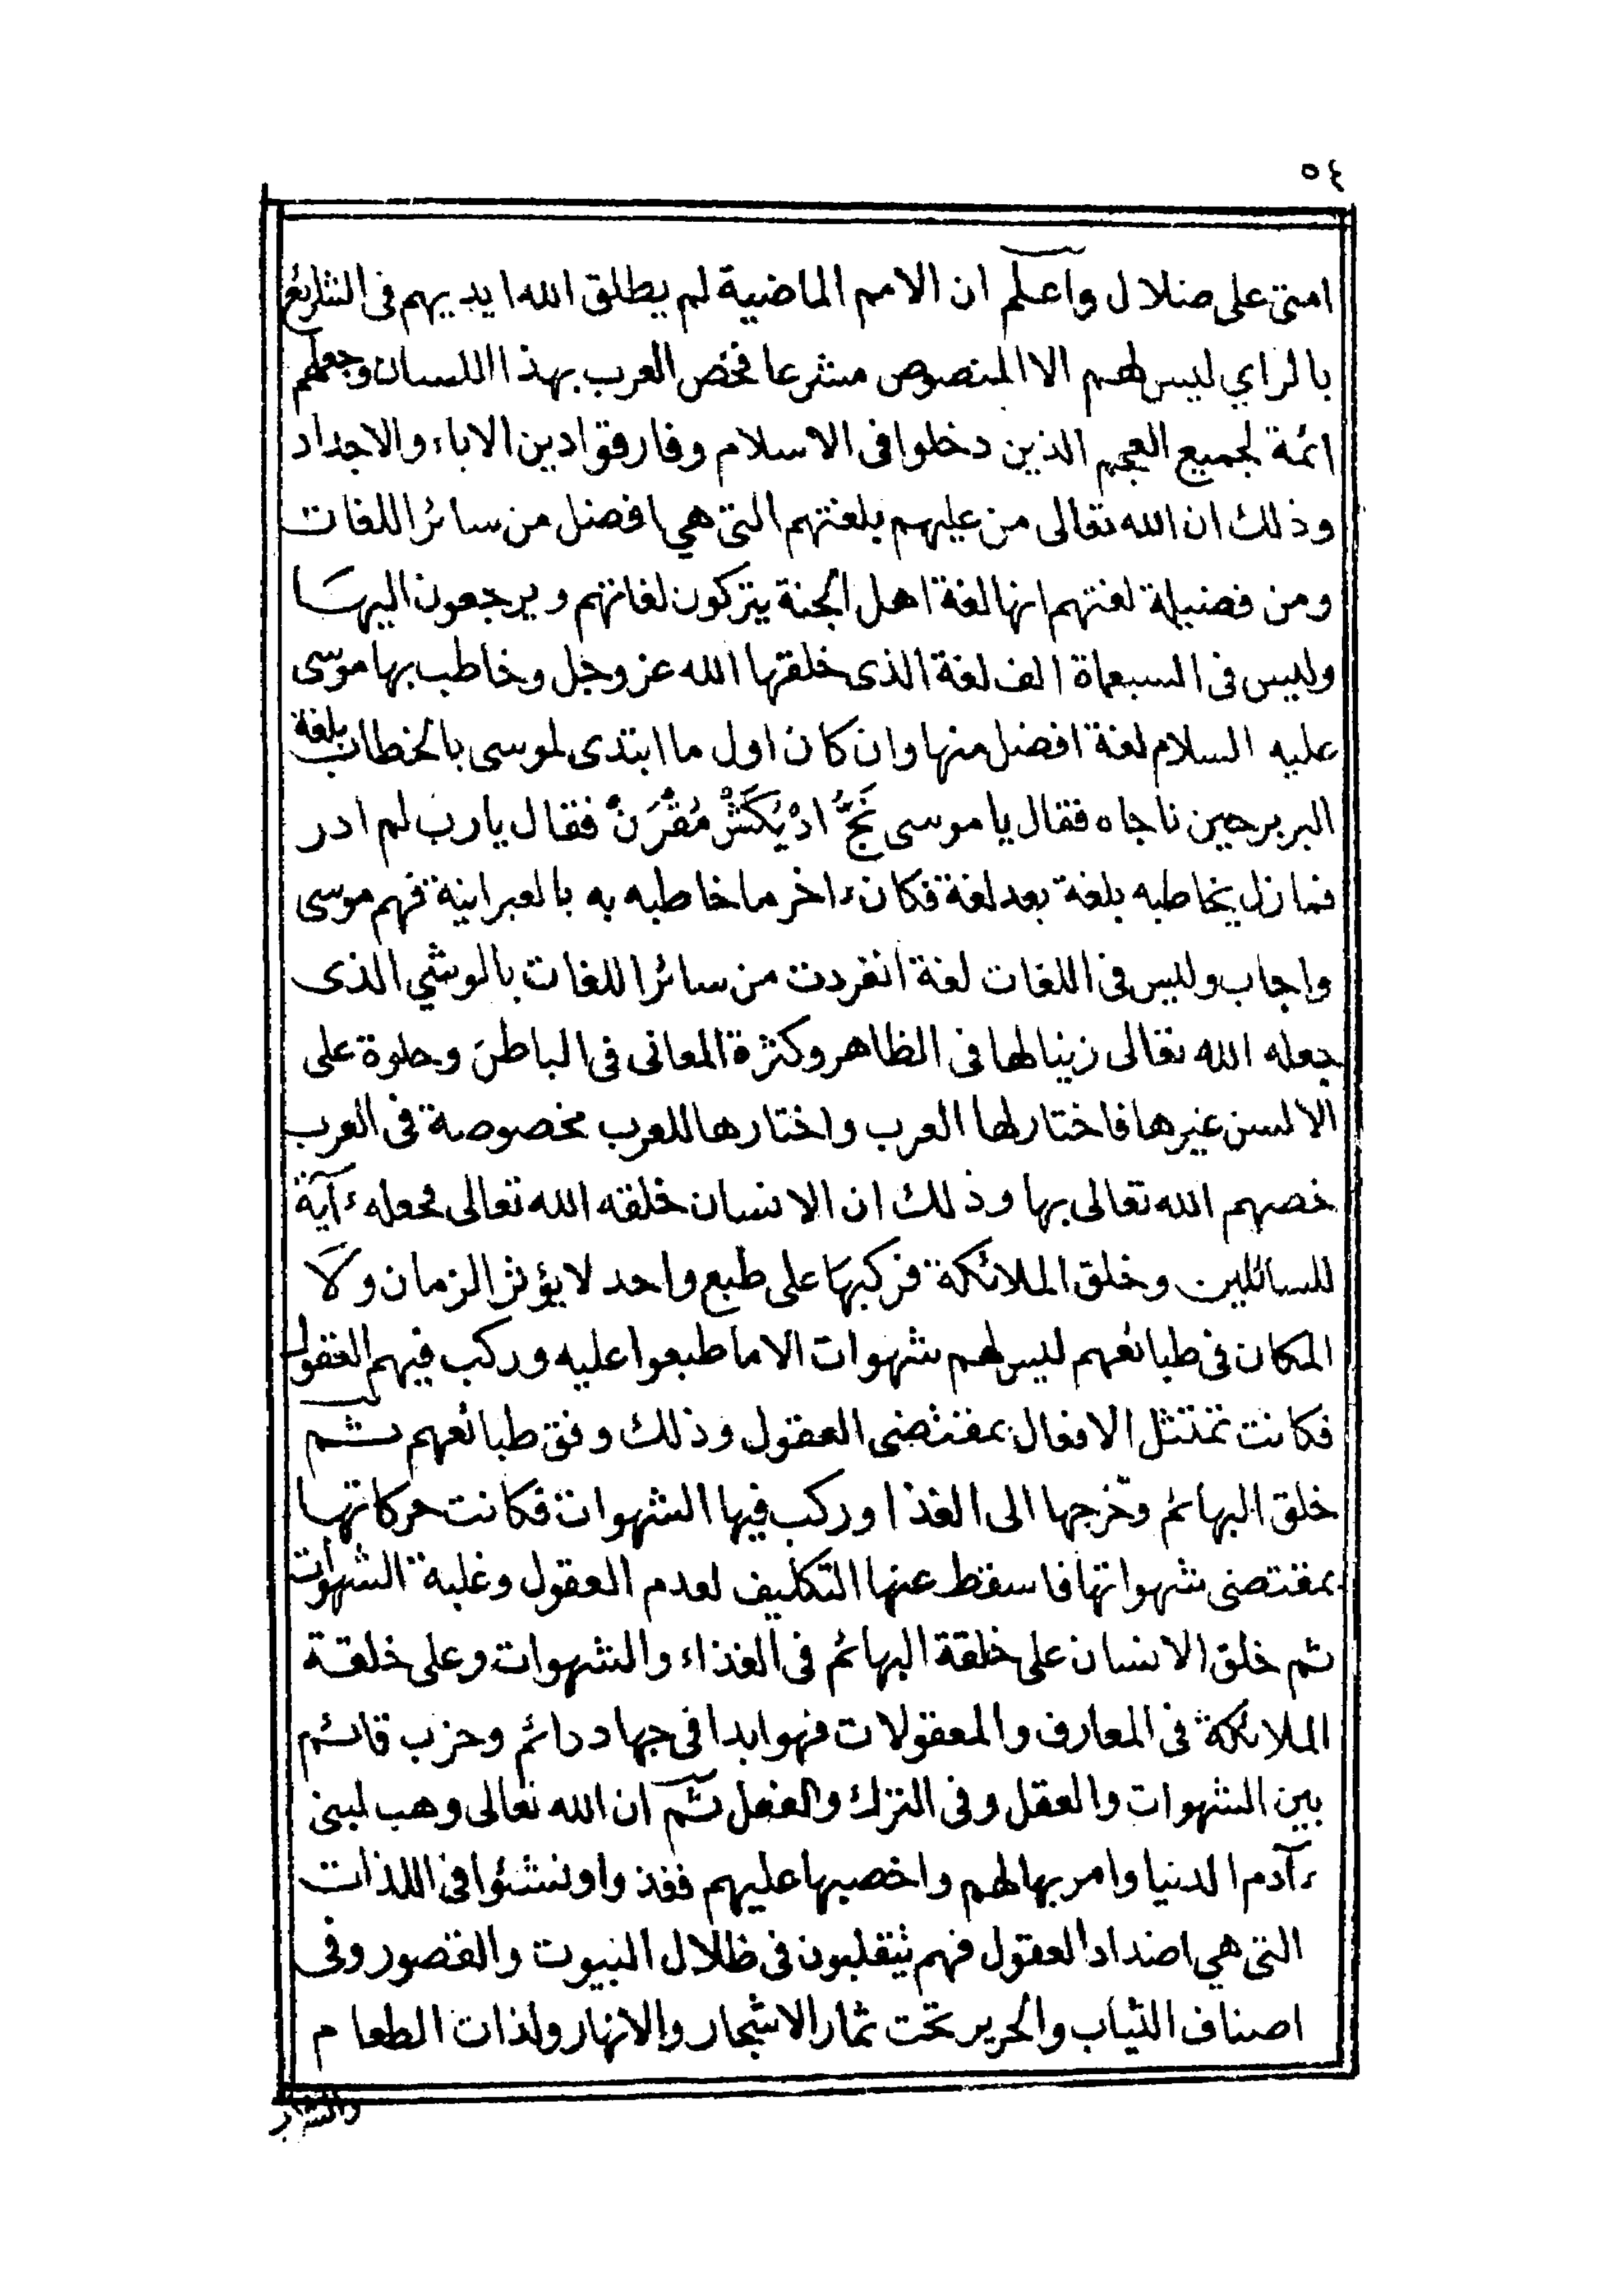 ٥٤
امتى على ضلال واعلم ان الامم الماضية لم يطلق الله ايديهم فى الشارئع
بالراي ليس لهم الا المنصوص مشرعا فخص العرب بهذا اللسان وجعلهم
ائمة لجميع العجم الذين دخلوا فى الاسلام وفارقوا دين الاباء والاجداد
وذلك ان الله تعالى من عليهم بلغتهم التى هي افضل من سائر اللغات
ومن فضيلة لغتهم انها لغة اهل الجنة يتركون لغاتهم ويرجعون اليها
وليس فى السبعماة الف لغة الذى خلقها الله عز وجل وخاطب بها موسى
عليه السلام لغة افضل منها وان كان اول ما ابتدى لموسى بالخطاب بلغة
البربر حين ناجاه فقال يا موسى نَجُّ ادْيُكَشْ مُقْرَنْ فقال يارب لم ادر
فما زل يخاطبه بلغة بعد لغة فكان ءاخر ما خاطبه به بالعبرانية فهم موسى
واجاب وليس فى اللغات لغة انفردت من سائر اللغات بالوشي الذى
جعله الله تعالى زينا لها فى الظاهر وكثرة المعانى فى الباطن وحلوة على
الالسن غيرها فاختار لها العرب واختارها للعرب مخصوصة فى العرب
خصهم الله تعالى بها وذلك ان الانسان خلقه الله تعالى فجعله ءآية
للسائلين وخلق الملائكة فركبها على طبع واحد لا يؤثر الزمان ولا
المكان فى طبائعهم ليس لهم شهوات الا ما طبعوا عليه وركب فيهم العقول
فكانت تمتثل الافعال بمقتضى العقول وذلك وفق طبائعهم ثم
خلق البهائم وخرجها الى الغذا وركب فيها الشهوات فكانت حركاتها
بمقتضى شهواتها فاسقط عنها التكليف لعدم العقول وغلبة الشهوات
ثم خلق الانسان على خلقة البهائم فى الغذاء والشهوات وعلى خلقة
الملائكة فى المعارف والمعقولات فهو ابدا فى جهاد دائم وحزب قائم
بين الشهوات والعقل وفى الترك والفعل ثم ان الله تعالى وهب لبنى
ءآدم الدنيا وامر بها لهم واخصبها عليهم فغذ واونشئوا فى اللذات
التى هي اضداد العقول فهم يتقلبون فى ظلال البيوت والقصور وفى
اصناف الثياب والحرير تحت ثمار الاشجار والانهار ولذات الطعام
والشراب